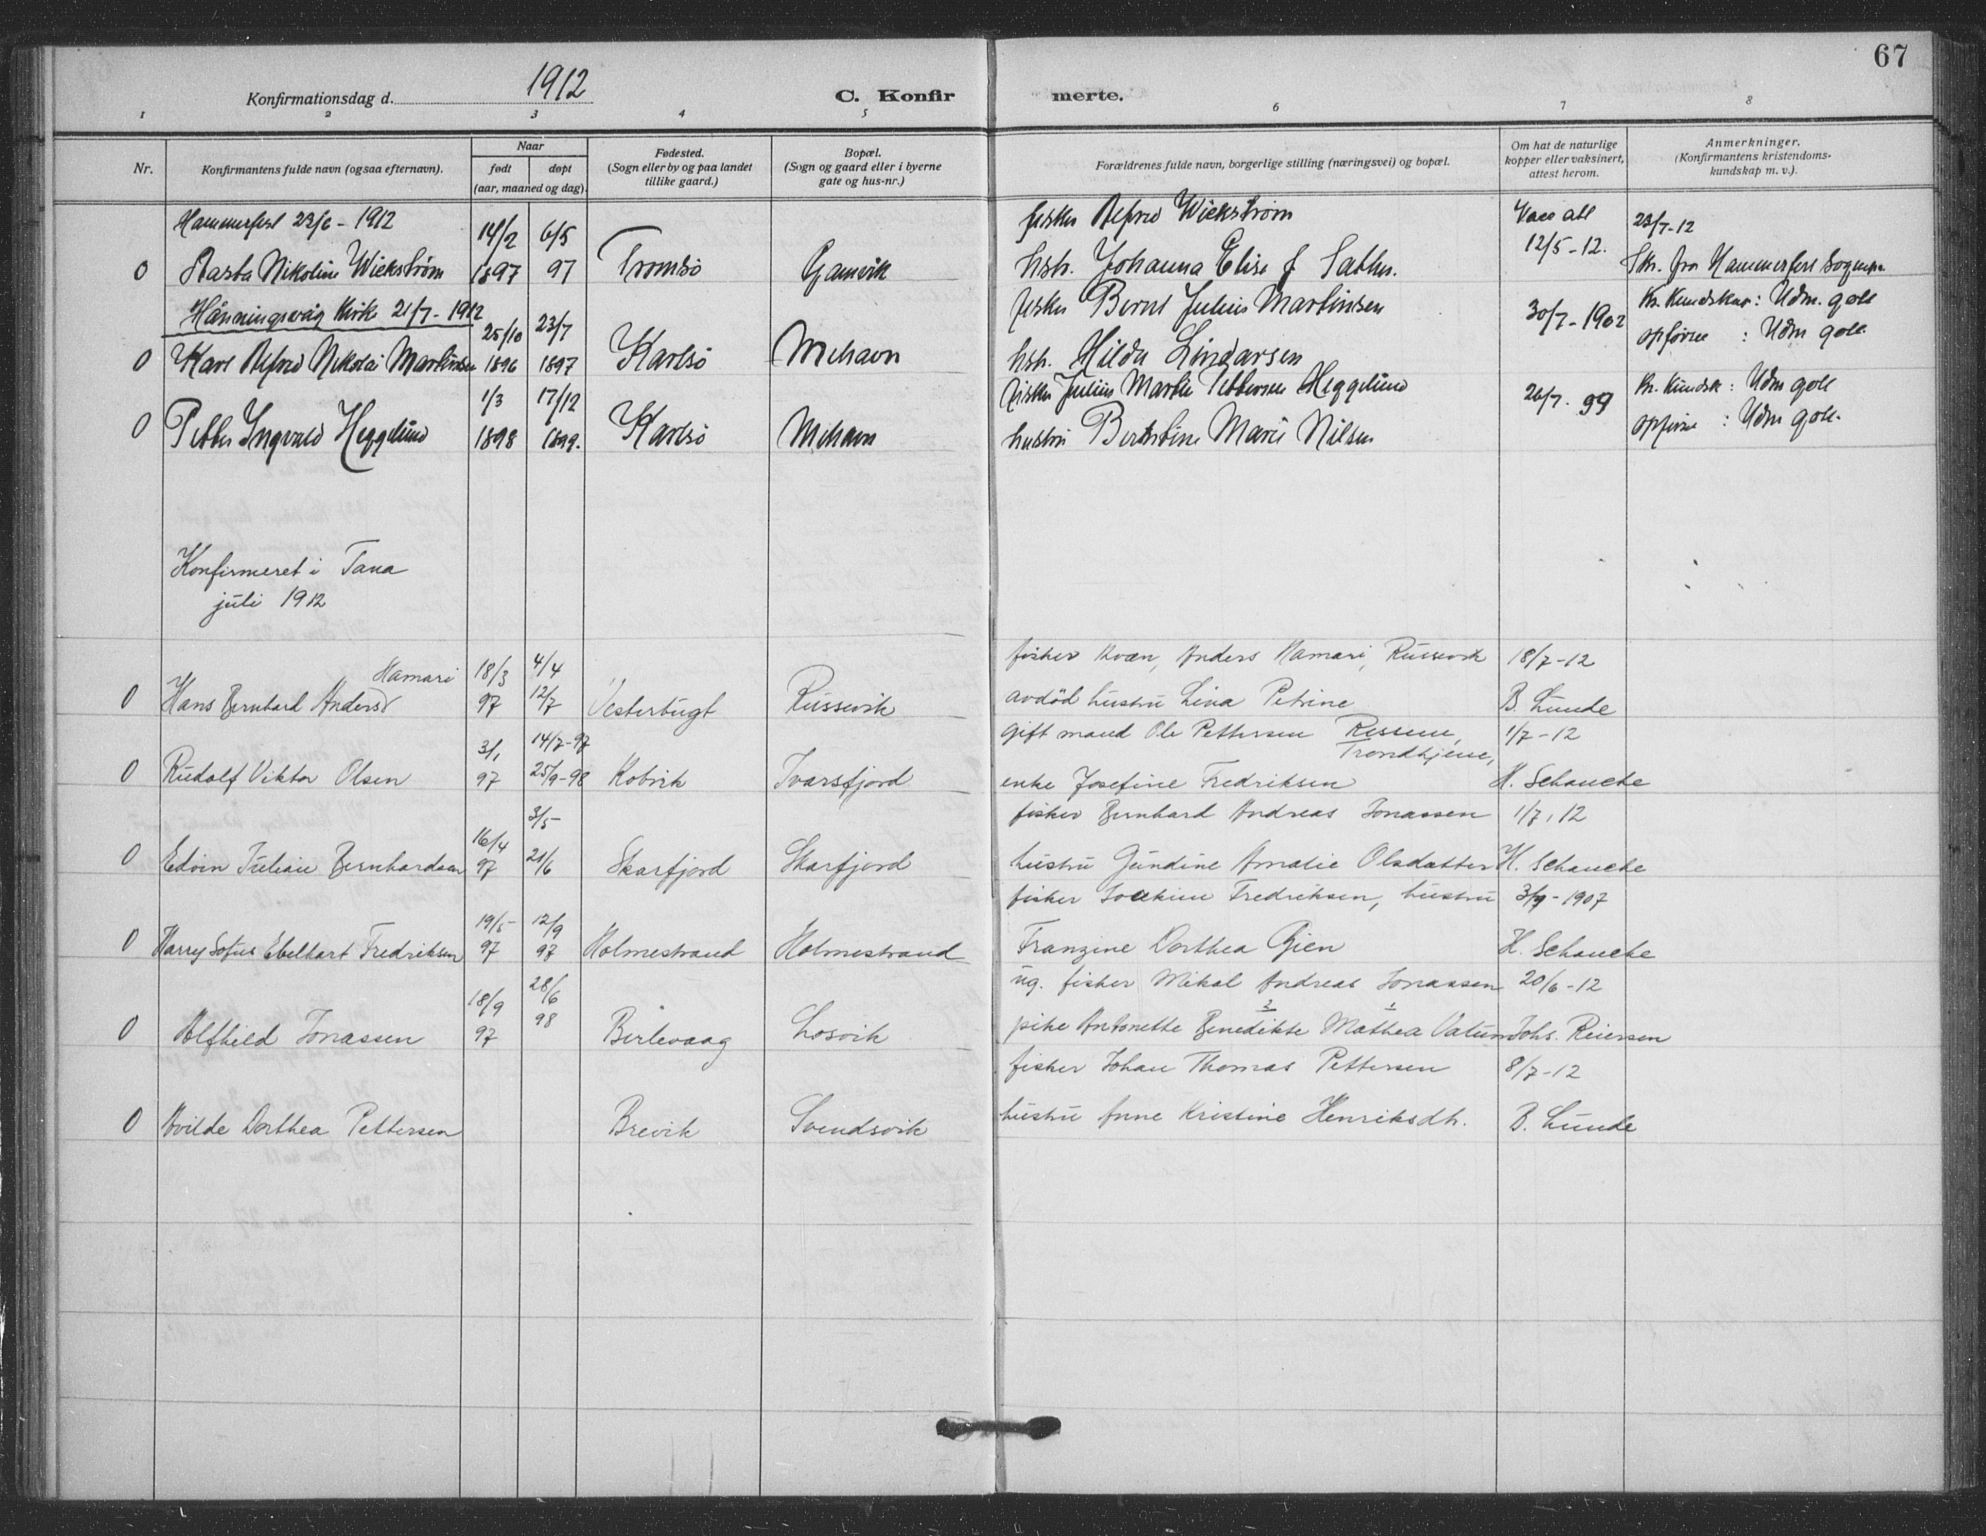 67
Konfirmationsdag d. 1912 C. Konfir merte.
1 2 3 4 5 6 7 8
Nr. Konfirmantens fulde navn (ogsaa efternavn). Naar født døpt (aar, maaned og dag). Fødested. (Sogn eller by og paa landet tillike gaard.) Bopæl. (Sogn og gaard eller i byerne gate og hus-nr.) Forældrenes fulde navn, borgerlige stilling (næringsvei) og bopæl. Om hat de naturlige kopper eller vaksinert, attest herom. Anmerkninger. (Konfirmantens kristendoms-kundskap m. v.).
Hammerfest 23/6 - 1912 14/2 6/5 fisker Alfred Wickstrøm Vacc att 23/7-12
0 Aasta Nikoline Wickstrøm 1897 97 Tromsö Gamvik hstr. Johanna Elise f Sather. 12/5-12. Skr. fra Hammerfest Sognepr.
Hånningsvåg Kirke 21/7 - 1912 25/10 23/7 fisker Bernt Julius Martinsen 30/7-1902 Kr. Kundskap: Udm. godt
0 Karl Alfred Nikolai Martinsen 1896 1897 Karlsö Mehavn hstr. Hilda Lindarsen opførsel : Udm godt.
1/3 17/12 fisker Julius Martin Pettersen Heggelund 26/7. 99 Kr. Kundsk: Udm godt
0 Petter Ingvald Heggelund 1898 1898. Karlsö Mehavn hustru Berntine Marie Nilsen opførsel : Udm godt.
Konfirmeret i Tana
juli 1912
Hamari 18/3 4/4 fisker kvæn, Anders Hamari, Russevik 18/7-12
0 Hans Bernhard Anders 97 12/7 Vesterbugt Russevik avdöd hustru Lina Petrine B. Lunde
3/1 14/7-97 gift mand Ole Pettersen Rissem, Trondhjem, 1/7-12
0 Rudolf Viktor Olsen 97 25/9-98 Kobvik Ivarsfjord enke Josefine Fredriksen H. Schancke
16/4 3/5 fisker Bernhard Andreas Jonassen 1/7.12
0 Edvin Julian Bernhardsen 97 21/6 Skarfjord Skarfjord hustru Gundine Amalie Olsdatter H. Schancke
19/5 12/9 fisker Joakim Fredriksen, hustru 3/9-1907
0 Harry Sofus Ebelhart Fredriksen 97 97 Holmestrand Holmestrand Franzine Dorthea Gjen H. Schancke
18/9 28/6 ug. fisker Mikal Andreas Jonassen 20/6-12
0 Alfhild Jonassen 97 98 Berlevaag Losvik pike Antonette Benedikte Mathea Vatum Johs. Reiersen
fisker Johan Thomas Pettersen 8/7-12
0 Hvilde Dorthea Pettersen Brevik Svendsvik hustru Anne Kristine Henriksdtr. B. Lunde